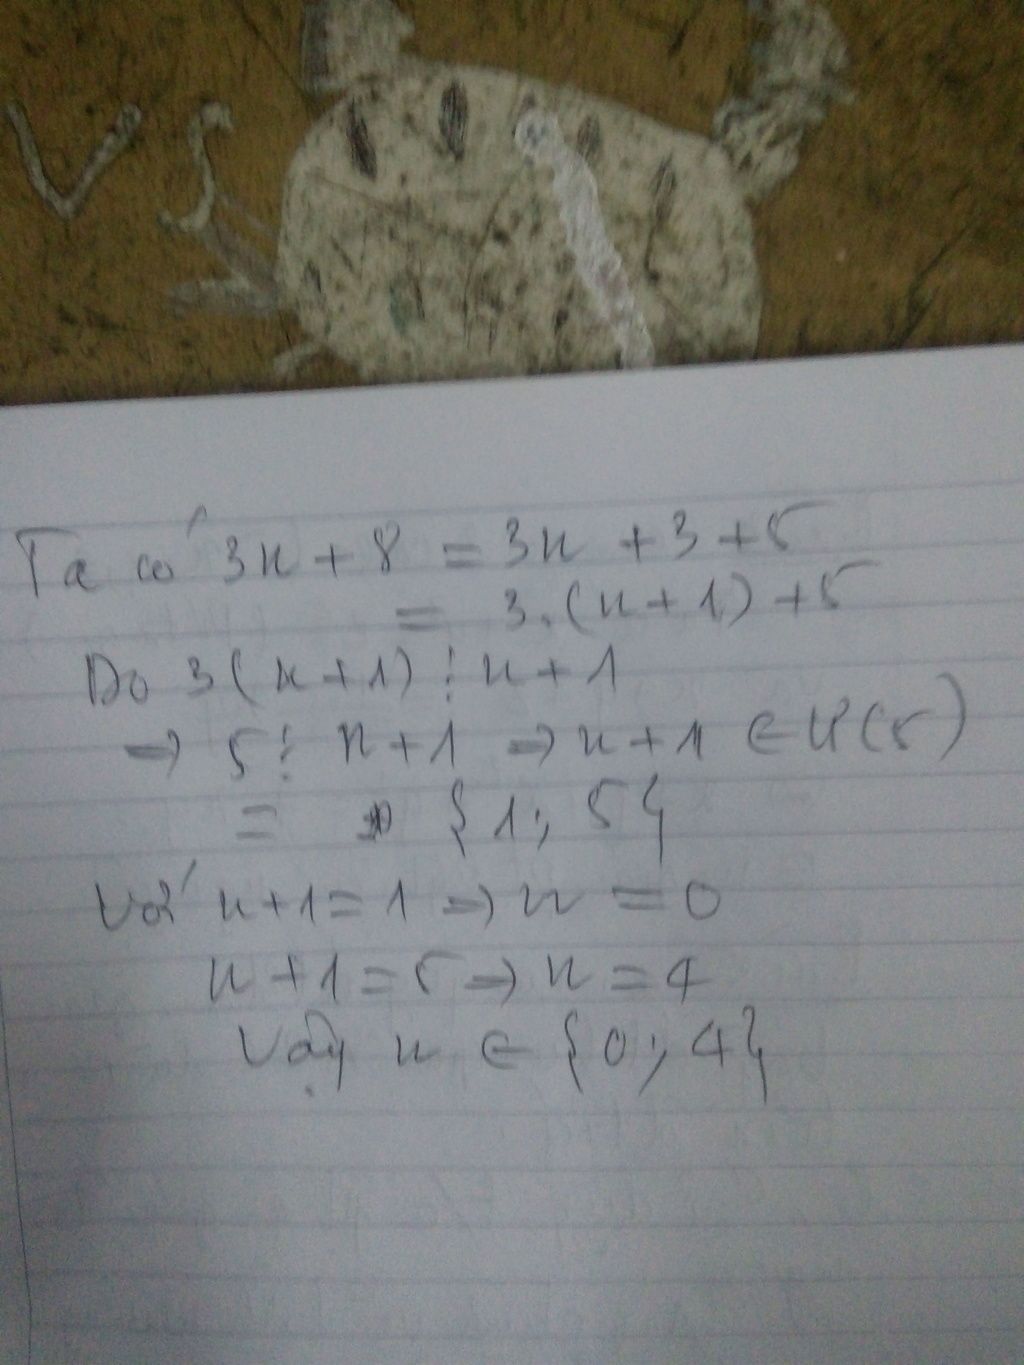 VS
Ta có 3n + 8 = 3n + 3 + 5
= 3.(n + 1) + 5
Do 3(n + 1) ⋮ n + 1
⇒ 5 ⋮ n + 1 ⇒ n + 1 ∈ Ư(5)
= {1; 5}
Với n + 1 = 1 ⇒ n = 0
n + 1 = 5 ⇒ n = 4
Vậy n ∈ {0; 4}